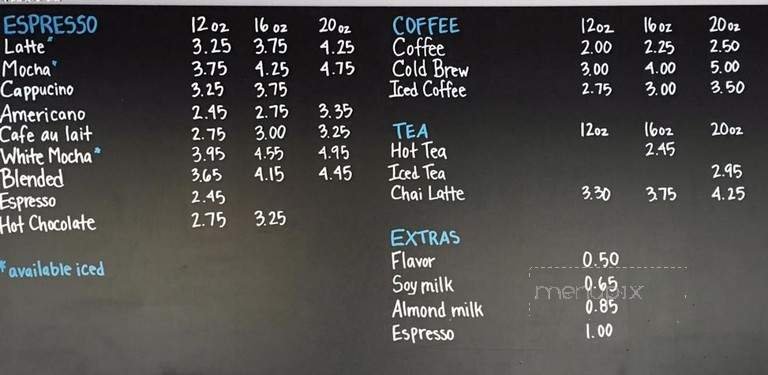 ESPRESSO 12oz 16oz 20oz
Latte* 3.25 3.75 4.25
Mocha* 3.75 4.25 4.75
Cappucino 3.25 3.75
Americano 2.45 2.75 3.35
Cafe au lait 2.75 3.00 3.25
White Mocha* 3.95 4.55 4.95
Blended 3.65 4.15 4.45
Espresso 2.45
Hot Chocolate 2.75 3.25
*available iced
COFFEE 12oz 16oz 20oz
Coffee 2.00 2.25 2.50
Cold Brew 3.00 4.00 5.00
Iced Coffee 2.75 3.00 3.50
TEA 12oz 16oz 20oz
Hot Tea 2.45
Iced Tea 2.95
Chai Latte 3.30 3.75 4.25
EXTRAS
Flavor 0.50
Soy milk 0.65
menupix
Almond milk 0.85
Espresso 1.00